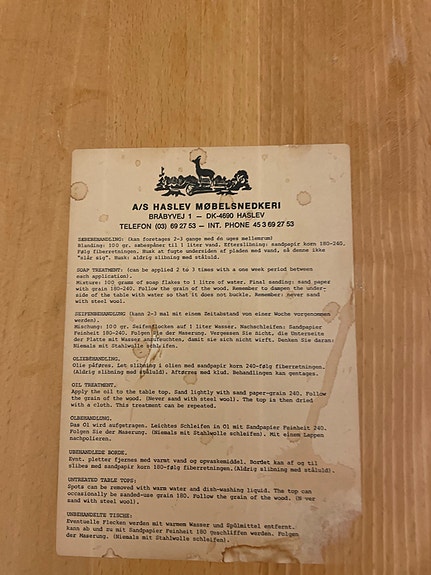 A/S HASLEV MØBELSNEDKERI
BRÅBYVEJ 1 – DK-4690 HASLEV
TELEFON (03) 69 27 53 – INT. PHONE 45 3 69 27 53
SÆBEBEHANDLING: (kan foretages 2-3 gange med én uges mellemrum)
Blanding: 100 gr. sæbespåner til 1 liter vand. Efterslibning: sandpapir korn 180-240.
Følg fiberretningen. Husk at fugte undersiden af pladen med vand, så denne ikke
"slår sig". Husk: aldrig slibning med ståluld.
SOAP TREATMENT: (can be applied 2 to 3 times with a one week period between
each application).
Mixture: 100 grams of soap flakes to 1 litre of water. Final sanding: sand paper
with grain 180-240. Follow the grain of the wood. Remember to dampen the under-
side of the table with water so that it does not buckle. Remember: never sand
with steel wool).
SEIFENBEHANDLUNG (kann 2-3 mal mit einem Zeitabstand von einer Woche vorgenommen
werden).
Mischung: 100 gr. Seifenflocken auf 1 Liter Wasser. Nachschleifen: Sandpapier
Feinheit 180-240. Folgen Sie der Maserung. Vergessen Sie nicht, die Unterseite
der Platte mit Wasser anzufeuchten, damit sie sich nicht wirft. Denken Sie daran:
Niemals mit Stahlwolle schleifen).
OLIEBEHANDLING.
Olie påføres. Let slibning i olien med sandpapir korn 240-følg fiberretningen.
(Aldrig slibning med ståluld). Aftørres med klud. Behandlingen kan gentages.
OIL TREATMENT.
Apply the oil to the table top. Sand lightly with sand paper-grain 240. Follow
the grain of the wood. (Never sand with steel wool). The top is then dried
with a cloth. This treatment can be repeated.
ÖLBEHANDLUNG.
Das Öl wird aufgetragen. Leichtes Schleifen in Öl mit Sandpapier Feinheit 240.
Folgen Sie der Maserung. (Niemals mit Stahlwolle schleifen). Mit einem Lappen
nachpolieren.
UBEHANDLEDE BORDE.
Evnt. pletter fjernes med varmt vand og opvaskemiddel. Bordet kan af og til
slibes med sandpapir korn 180-følg fiberretningen. (Aldrig slibning med ståluld).
UNTREATED TABLE TOPS:
Spots can be removed with warm water and dish-washing liquid. The top can
occasionally be sanded-use grain 180. Follow the grain of the wood. (N ver
sand with steel wool).
UNBEHANDELTE TISCHE:
Eventuelle Flecken werden mit warmem Wasser und Spülmittel entfernt.
kann ab und zu mit Sandpapier Feinheit 180 geschliffen werden. Folgen
der Maserung. (Niemals mit Stahlwolle schleifen).